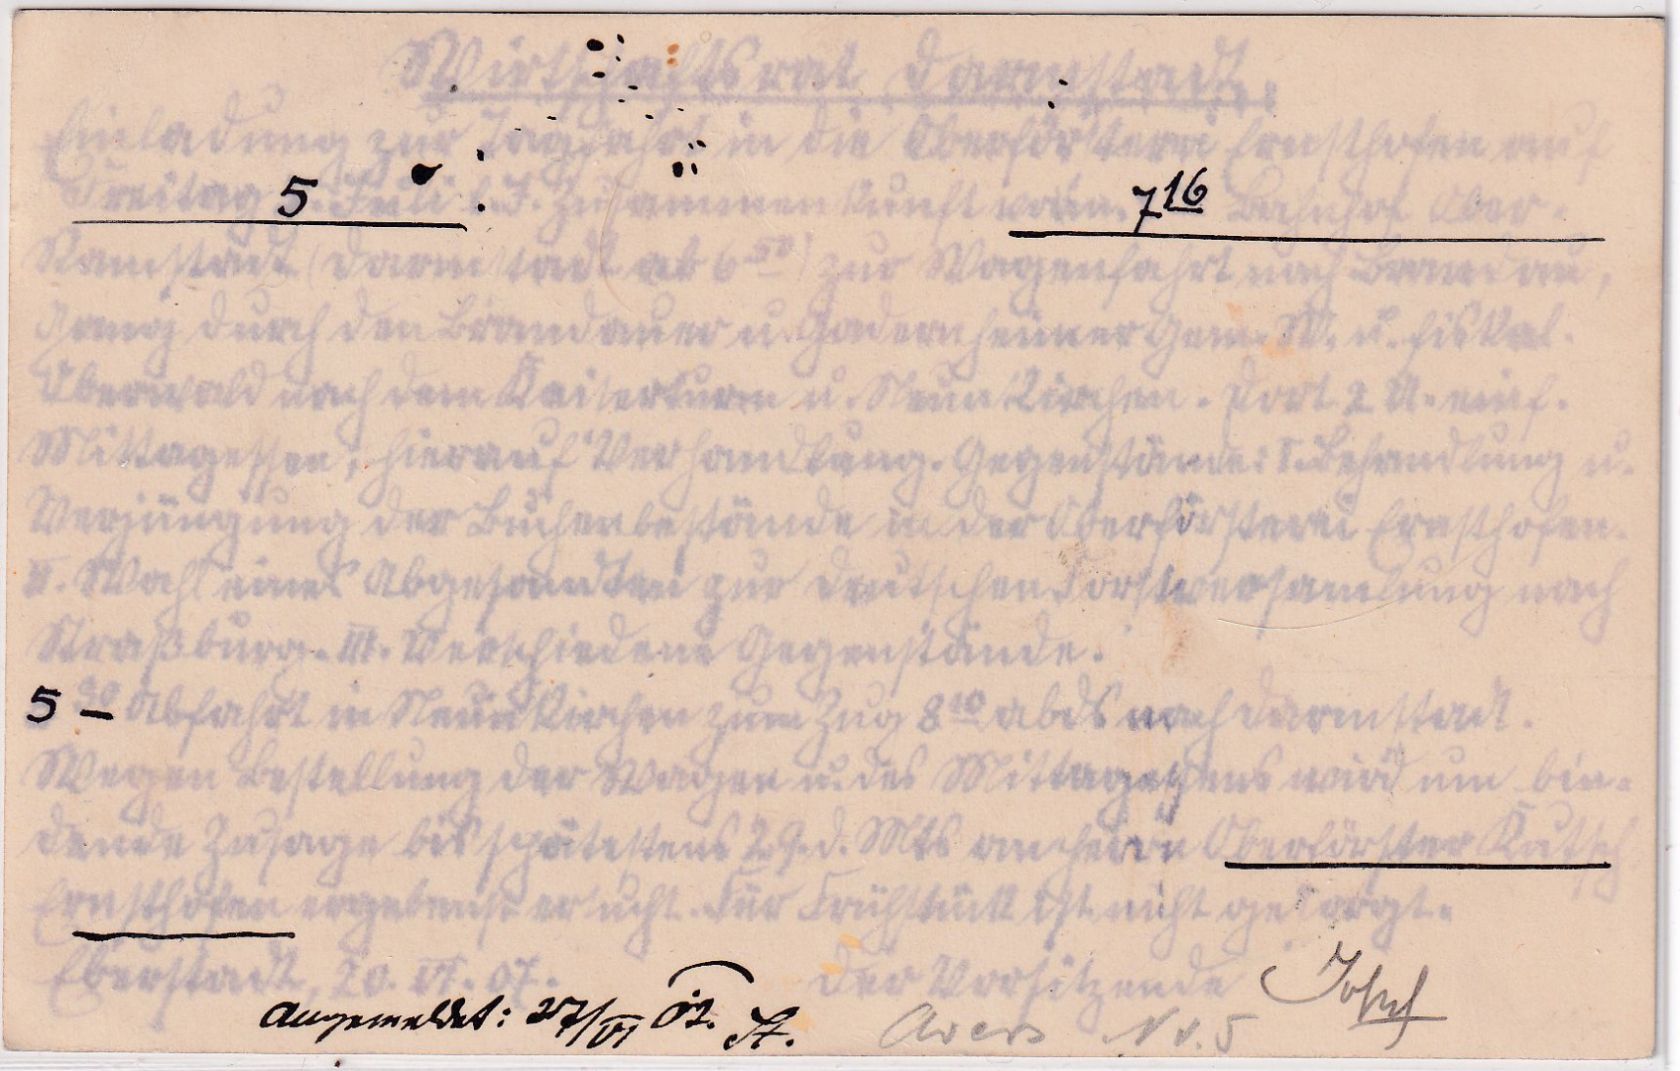 Wirtschaftsrat Darmstadt.
Einladung zur Tagfahrt in die Oberförsterei Ernsthofen auf
Freitag 5. Juli l. J. Zusammenkunft vorm. 7 16 Bahnhof Ober-
Ramstadt (Darmstadt ab 6 50) zur Wagenfahrt nach Brandau,
Gang durch den Brandauer u. Gadernheimer Gem. W. u. fiskal.
Oberwald nach dem Kaiserturm u. Neunkirchen. Dort 2 U. einf.
Mittagessen, hierauf Verhandlung. Gegenstände: I. Behandlung u.
Verjüngung der Buchenbestände in der Oberförsterei Ernsthofen.
II. Wahl eines Abgesandten zur deutschen Forstversamlung nach
Straßburg. III. Verschiedene Gegenstände.
5 30 Abfahrt in Neunkirchen zum Zug 8 10 abds nach Darmstadt.
Wegen Bestellung der Wagen u. des Mittagessens wird um bin-
dende Zusage bis spätestens 29. d. Mts an Herrn Oberförster Kutsch
Ernsthofen ergebenst ersucht. Für Frühstück ist nicht gesorgt.
Eberstadt, 20. VI. 07. Der Vorsitzende Joseph
Angemeldet: 27/VI 07. St.
Nr. 5